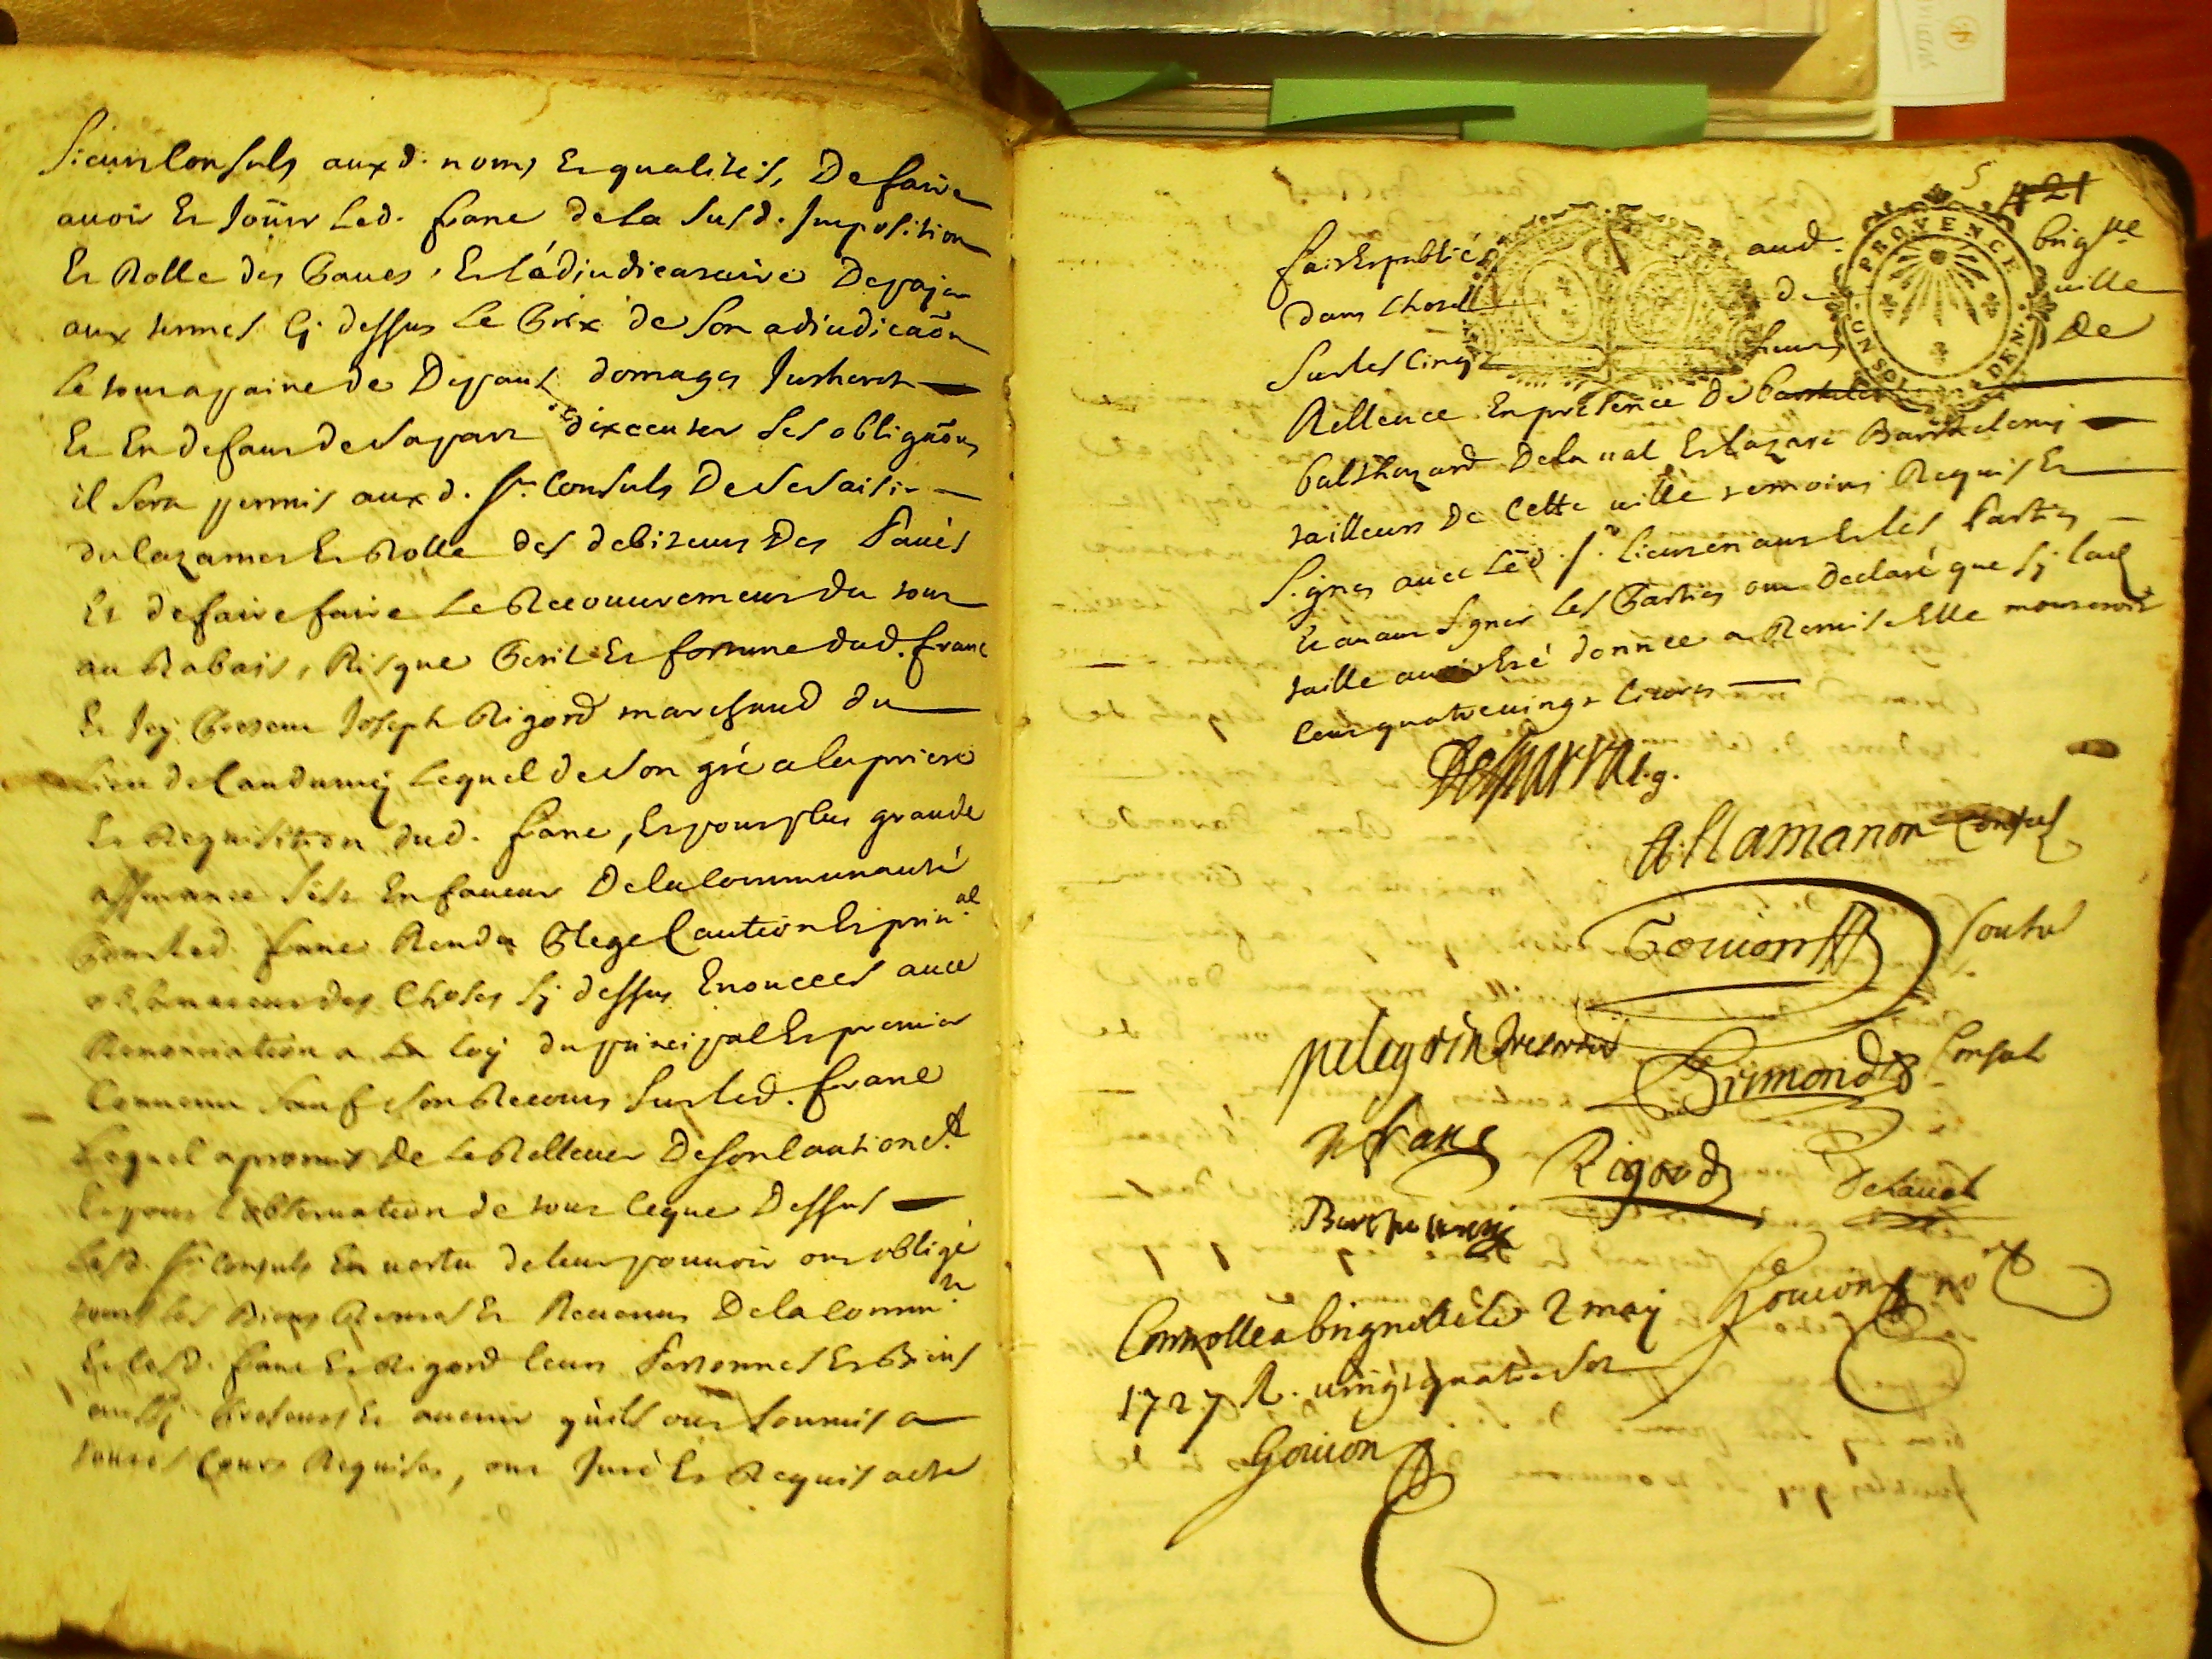 sieurs Consuls aux d. noms Et qualités, De faire
avoir Et Joüir Led. franc de la susd. Imposition
Et Rolle des Paues, Et L'adiudicataire De payer
aux termes Cy dessus Le Prix de son adiudicaõn
Le tout a paine de Depans domages Jnterests
Et En defaut de sa part d'exceuter ses obligaõns
il sera permis aux d. srs Consuls De se saisir
du Cazanet Et Rolle des debiteurs Des Paués
Et de faire faire Le Recouuremeur du tout
au Rabais, Risque Peril Et fortune dud. franc
Et Jcy Present Joseph Rigord marchand du
Lieu de Lequel de son gré a la priere
Et Requisition dud. franc, Et pour plus grande
assurance s'est En faueur De la Communauté
Pour Led. franc Rendu Plege Caution Et prin.al
des Choses sy dessus Enoncees auec
Renonciation a La Loy du principal Et premier
Conuenu sauf son Recours sur Led. franc
Lequel a promis De Le Relleuer De son Caution.t
Et pour l'obseruation de tout Ceque Dessus
Lesd. srs Consuls En uertu de leur pouuoir ont obligé
tous les Biens Rentes Et Reuenus De la Commu.té
Et lesd. franc Et Rigord leurs Personnes Et Biens
aussy Presents Et auenir qu'ils ont soumis a
toutes Cours Requises, ont Juré Et Requis acte
5 421
fait Et publié aud. brig.lle
dans L'hotel de uille
PROVENCE
UN SOL DEN.
sur les Cinq heures De
Relleuee En presence De
Balthazard Delaual Et Lazare Barthelemy
tailleurs De Cette uille temoins Requis Et
signes auec Led. sr. Lieutenant Et les Parties
Et auant signer les Parties ont Declaré que sy Lad
taille auoit Eté donnée a Remise Elle monteroit
Cent quatreuingt Liures
l.g.
A. Lamanon Consul
Gouion Consul
pelegrin tresorier
Grimond Consul
n franc
Rigord
Delaual
Barthelemy
Gouion no.re
Connollé a brignolle Le 2 may
1727 R. uingt quatre sols
Gouion